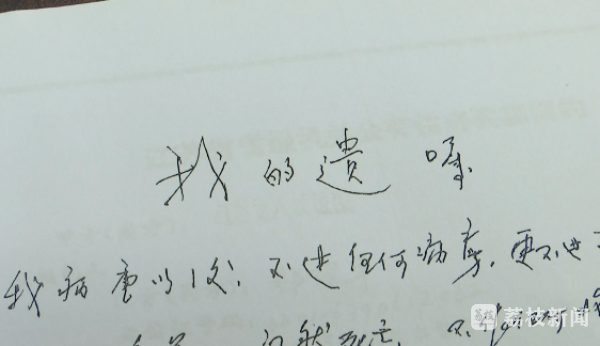 我的遗嘱
我病重以后,不进任何病房,更不进
自然死亡,不
荔枝新闻